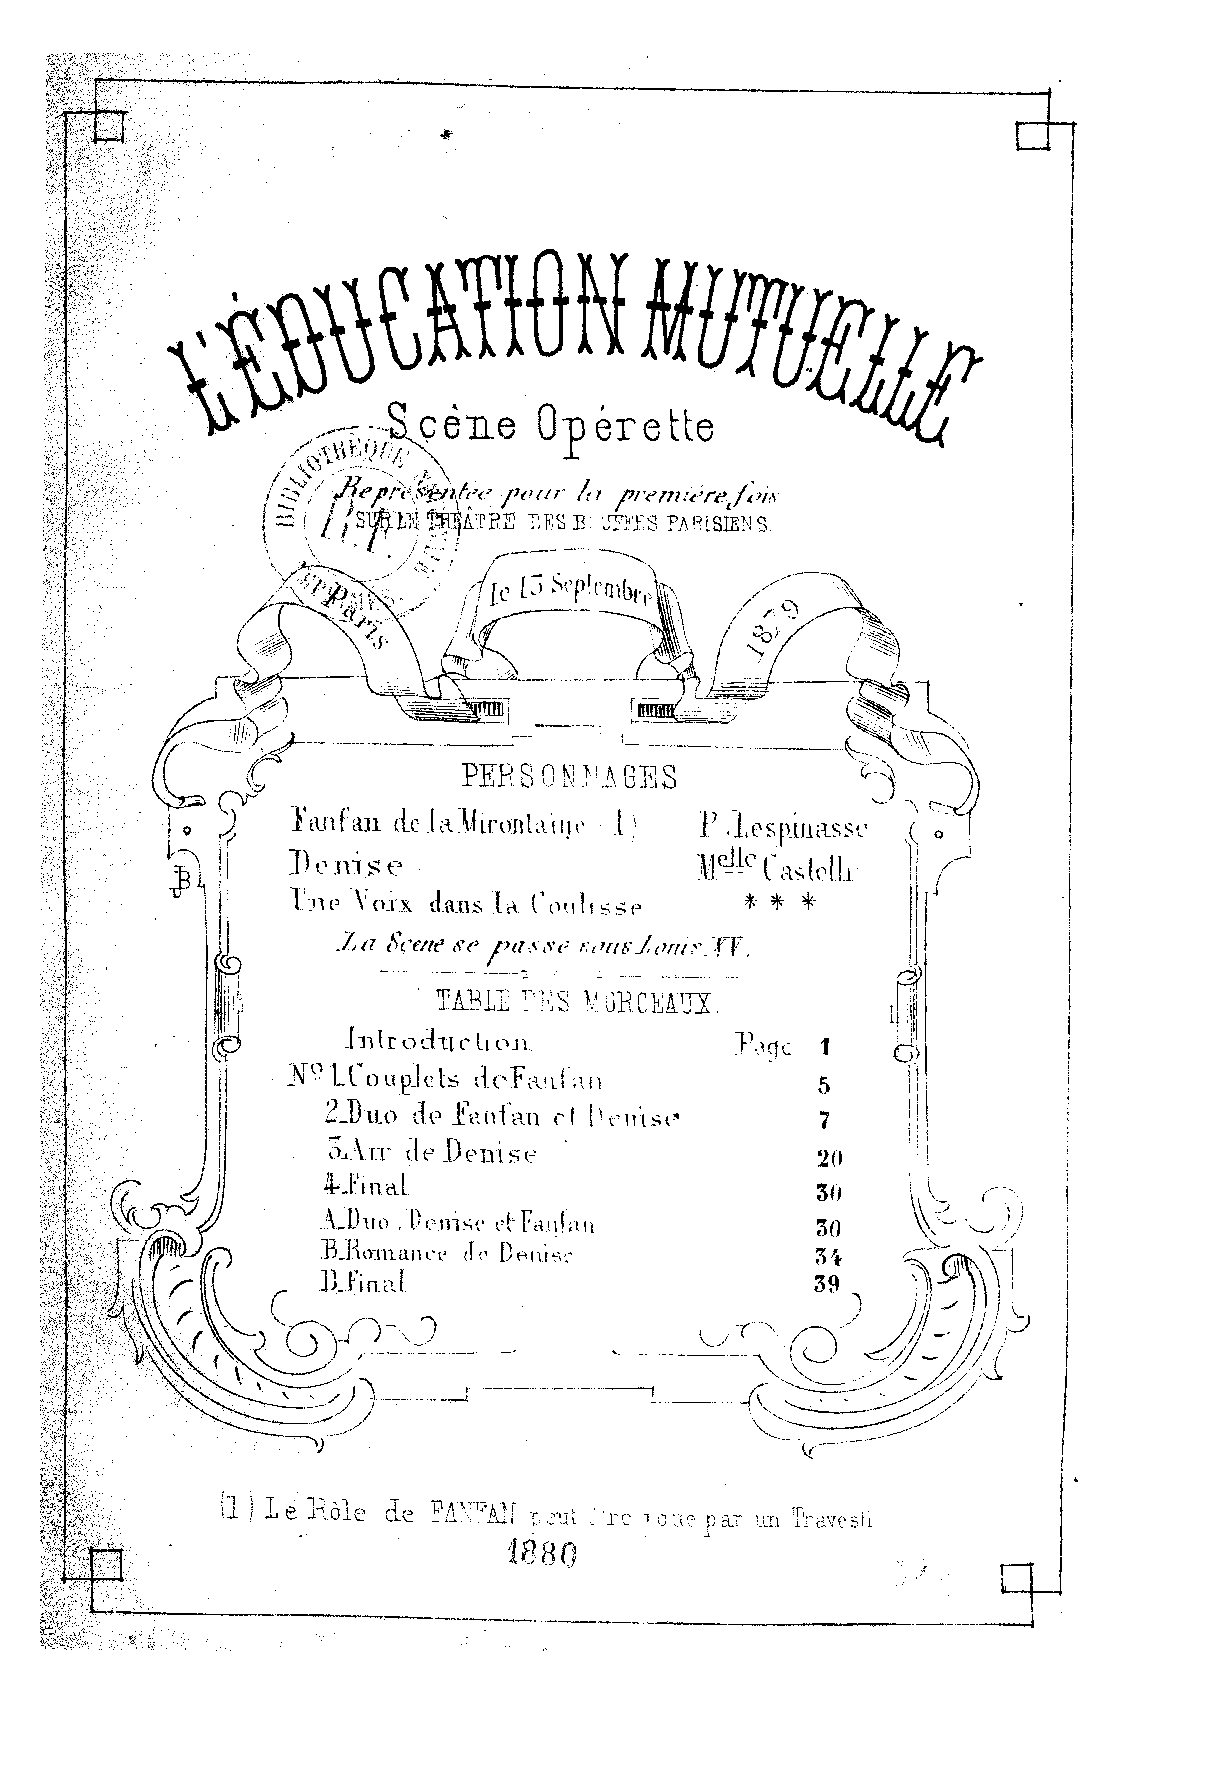 L'ÉDUCATION MUTUELLE
Scène Opérette
Représentée pour la première fois
SUR LE THÉÂTRE DES BOUFFES PARISIENS.
BIBLIOTHÈQUE
R.F.
Paris
le 15 Septembre
1879
PERSONNAGES
Fanfan de la Mirontaine (1) P. Lespinasse
Denise Melle Castelli
Une Voix dans la Coulisse * * *
La Scène se passe sous Louis XV.
TABLE DES MORCEAUX.
Introduction Page 1
Nº 1. Couplets de Fanfan 5
2. Duo de Fanfan et Denise 7
3. Air de Denise 20
4. Final 30
A. Duo, Denise et Fanfan 30
B. Romance de Denise 34
B. Final 39
(1) Le Rôle de FANFAN peut être joué par un Travesti
1880